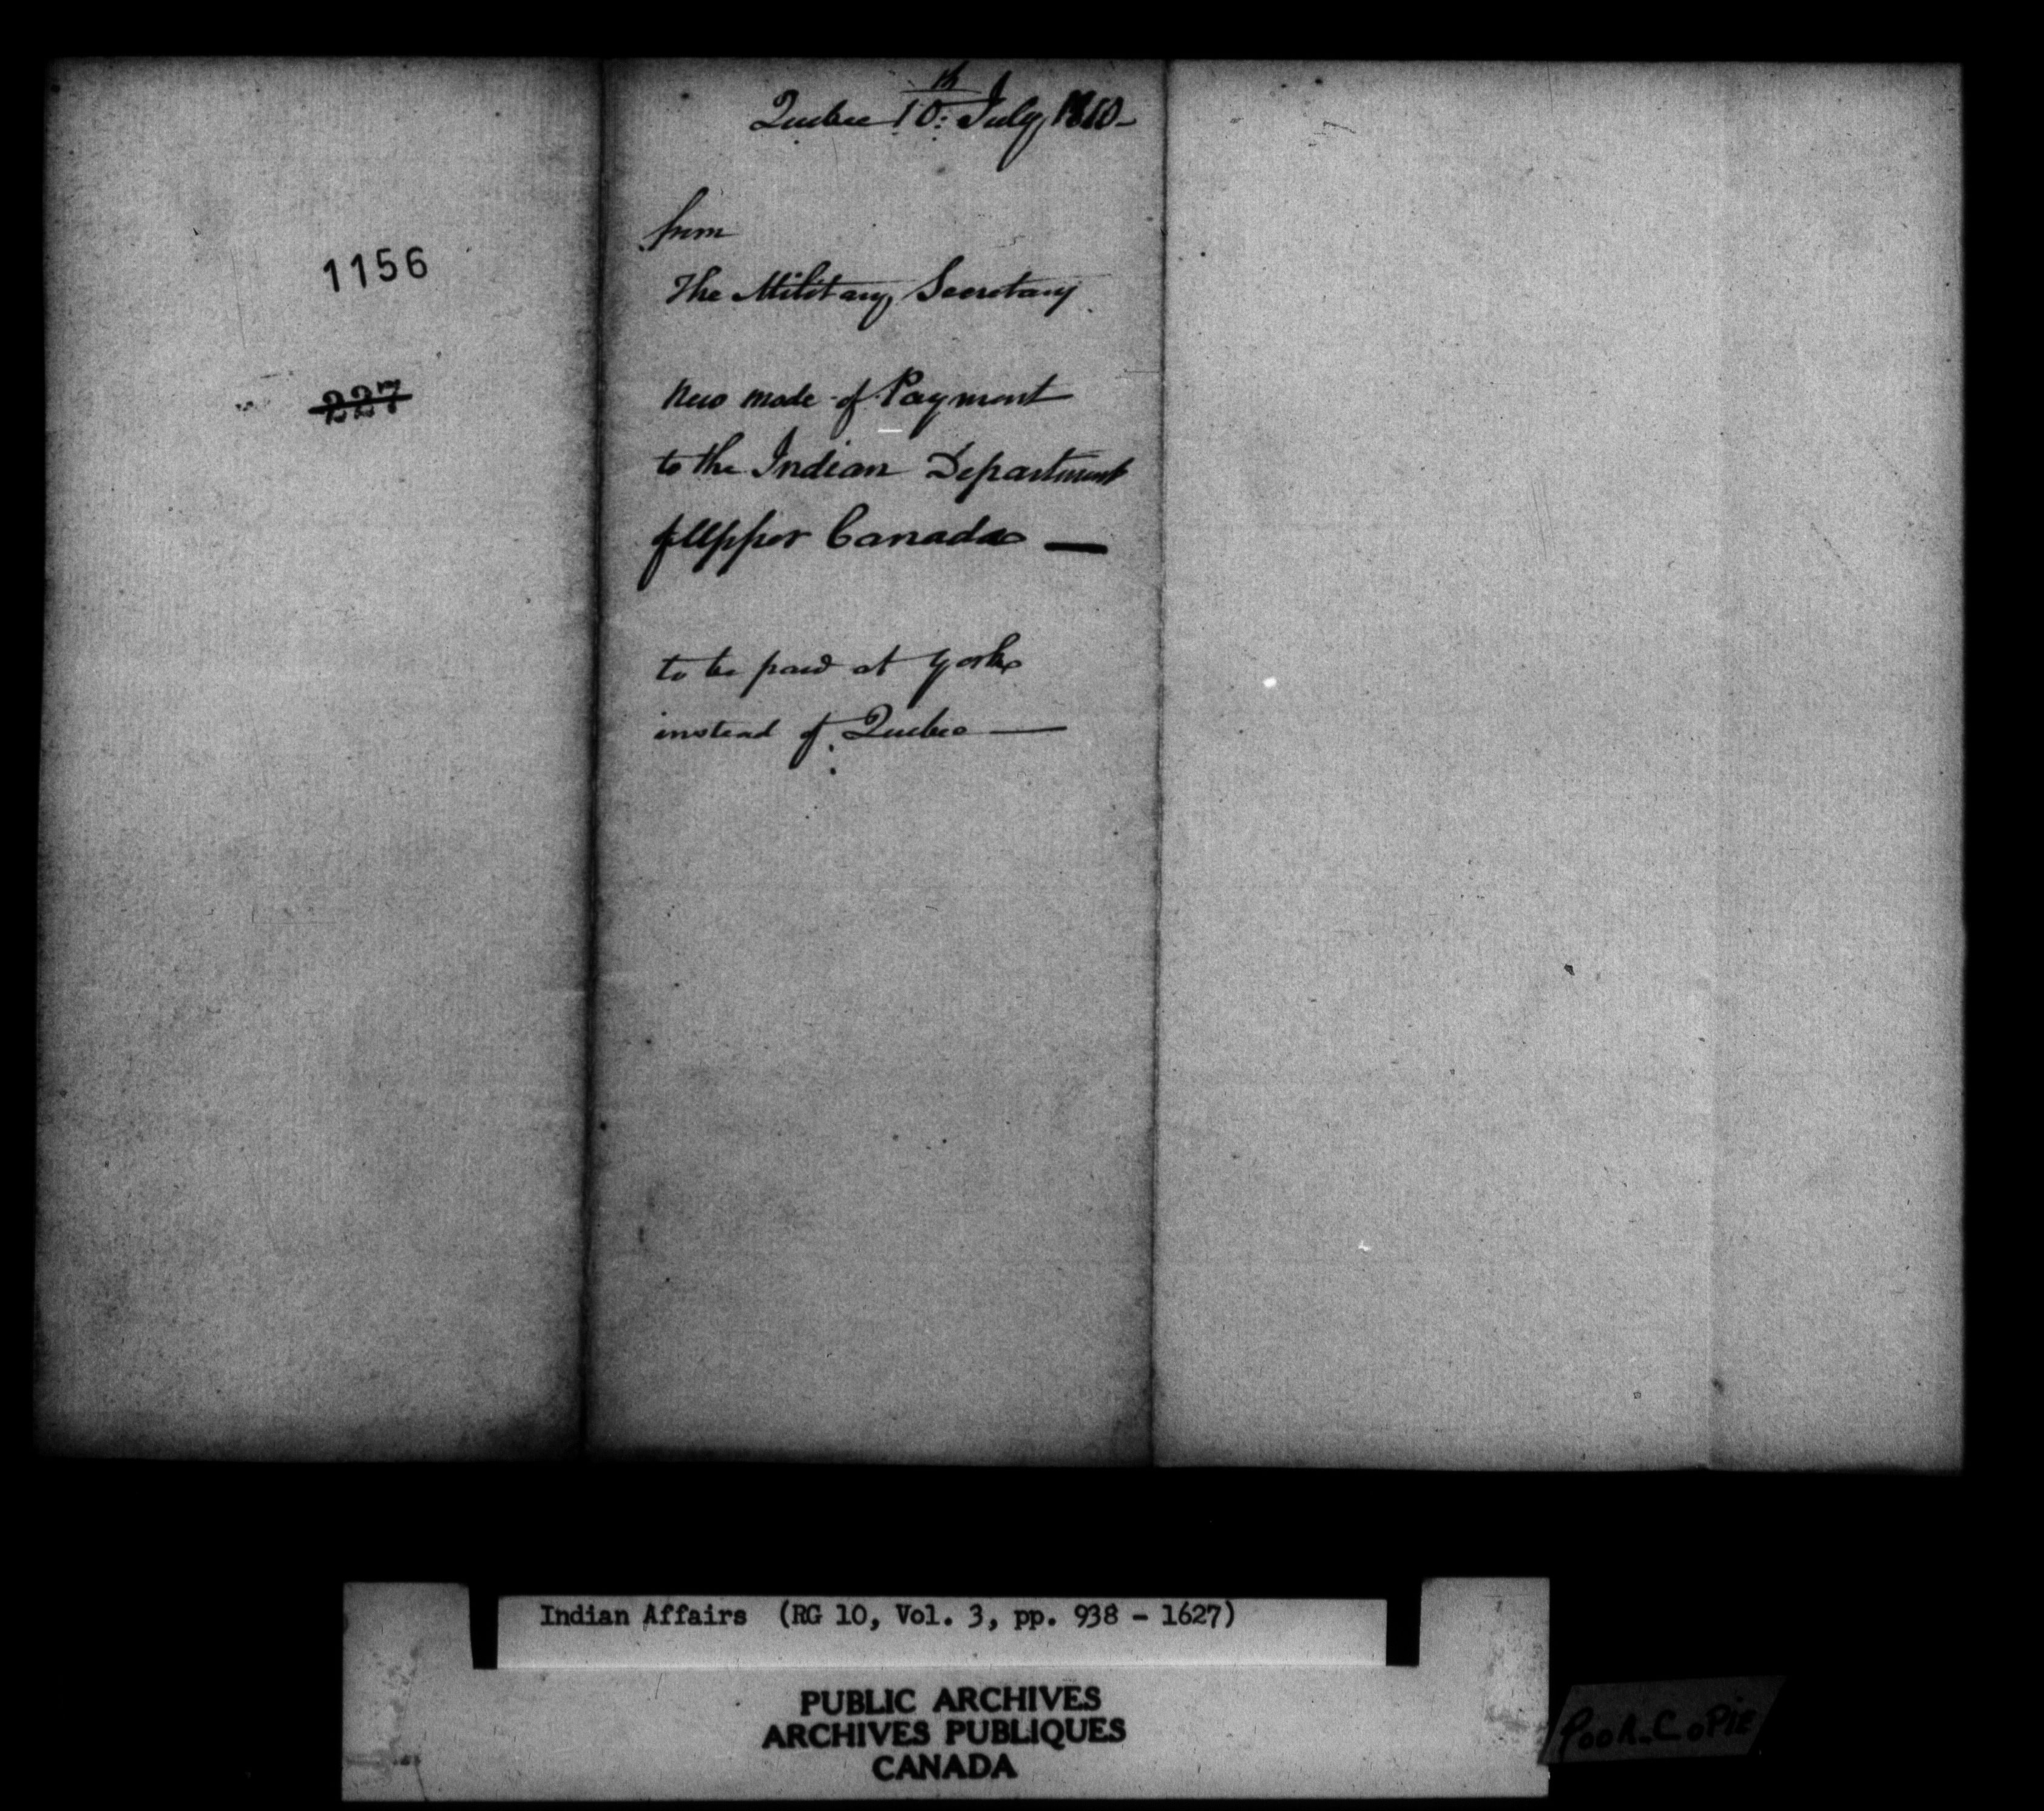 1156
227
Quebec 10th July 1810 -
from
The Military Secretary.
New mode of Payment
to the Indian Department
of Upper Canada —
to be paid at York
instead of Quebec —
Indian Affairs (RG 10, Vol. 3, pp. 938 - 1627)
PUBLIC ARCHIVES
ARCHIVES PUBLIQUES
CANADA
POOR COPIE